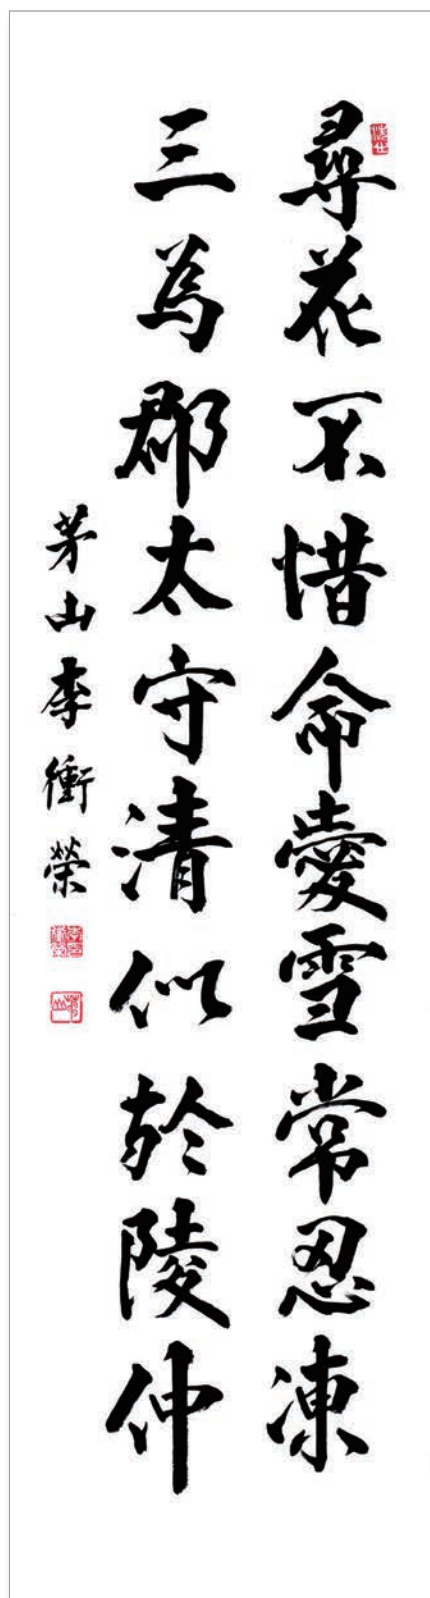 尋花不惜命愛雪常忍凍
三為郡太守清似於陵仲
茅山李衝榮